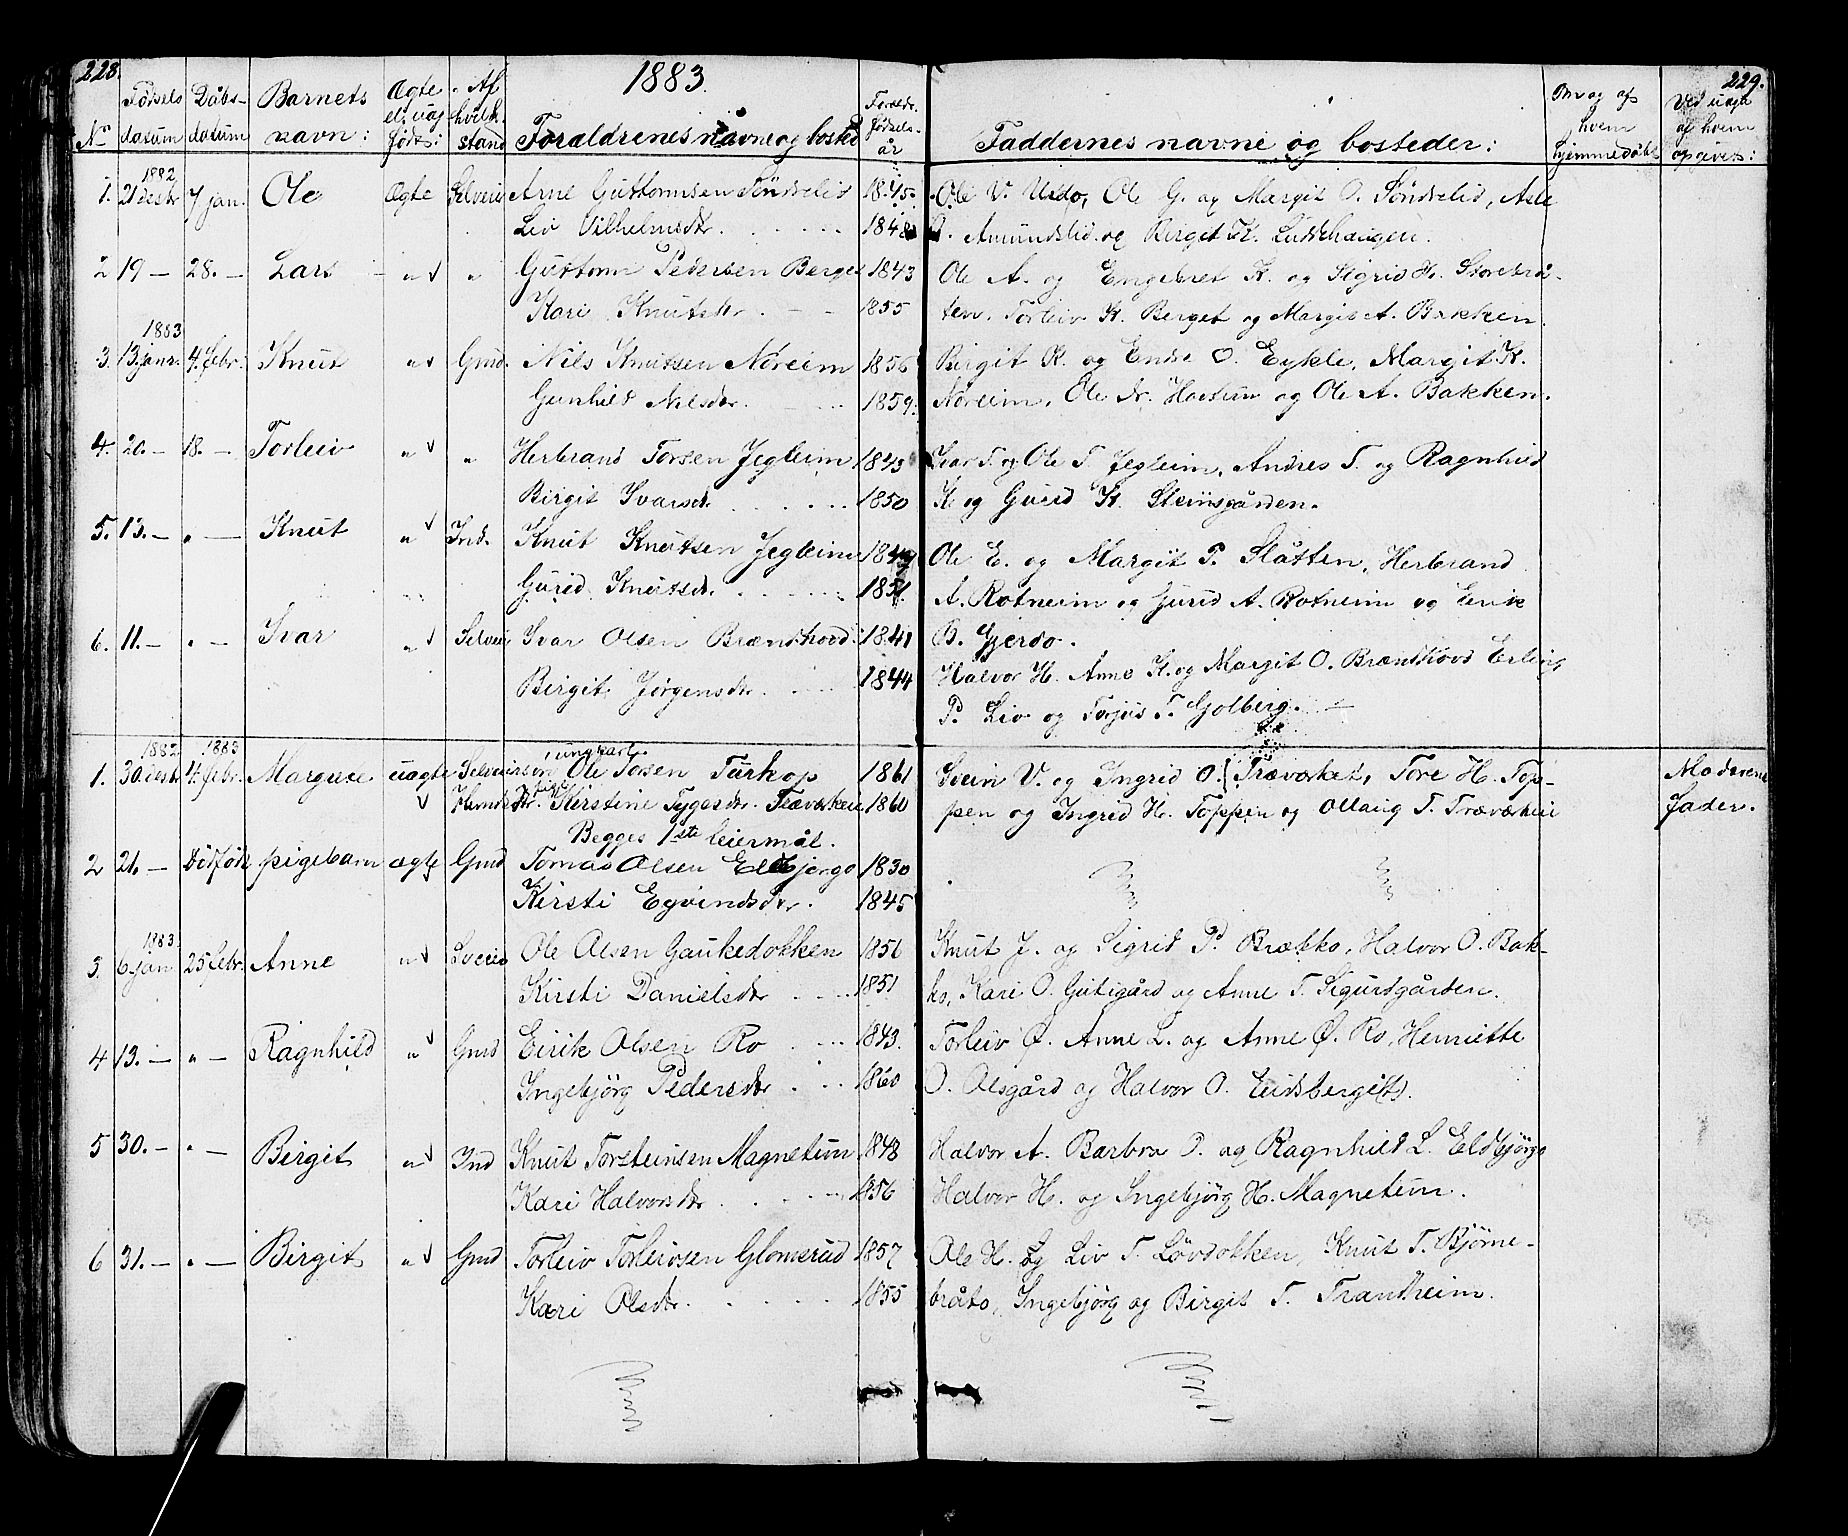 228.
1883.
229.
No
Fødsels datum
Dåbs- datum
Barnets navn:
Ægte el. uæg. født:
Af hvilk. stand
Forældrenes navne og bosted
Foreldr. fødsels- år
Faddernes navne og bosteder:
Om og af hvem hjemmedøbt
Ved uægte af hvem opgivet:
1. 1882 21 destr. 7 jan. Ole Ægte Selveier Arne Guttormsen Søndrelid 1845. Ole V. Usdo, Ole G. og Margit O. Søndrelid, Asle
Liv Vilhelmsdr. 1848 O. Amundslid og Birget K.
2 19 — 28. — Lars " " Guttorm Pedersen Berget 1843 Ole A. og Engebret K. og Sigrid K. Storebrå-
Kari Knutsdr. 1855 ten. Torleiv K. Berget og Margit A. Bakken.
3. 1883 13. janr. 4. febr. Knut " Gmd. Nils Knutsen Noreim 1856 Birgit K. og Endre O. Eykle, Margit K.
Gunhild Nilsdr. 1859. Noreim, Ole Nr. Haetum og Ole A. Bakken.
4. 20. — 18. — Torleiv " " Herbrand Torsen Jegleim 1843 Ivar T. og Ole T. Jegleim, Andres T. og Ragnhild
Birgit Ivarsdr. 1850 K. og Gurid K. Steinsgården.
5. 13. — " — Knut " Ind. Knut Knutsen Jegleim 1849 Ole E. og Margit P. Slåtten, Herbrand
Gurid Knutsdr. 1851. A. Rotneim og Gurid A. Rotneim og Eirik
6. 11. — " — Ivar " Selveier Ivar Olsen Brændhovd 1841 B. Gjerdo.
Birgit Jørgensdr. 1844 Halvor H. Anne K. og Margit O. Brændhovd Erling
P. Liv og Torjus T. Golberg.
1. 1882 30. destr. 1883 4. febr. Margrete uægte Selveiersøn ungkarl. Ole Torsen Turkop 1861 Svein V. og Ingrid O. Træværket, Tore H. Top- Moderens
Hmdsdr. pige Kirstine Tygesdr. Træværket 1860 pen og Ingrid H. Toppen og Ollaug T. Træværket fader.
Begges 1ste leiermål.
2 21. — Dødfødt pigebarn ægte Gmd Tomas Olsen Eldbjørgo 1830
Kirsti Eyvindsdr. 1845
3. 1883 6. jan. 25 febr. Anne " Ole Olsen Gaukedokken 1851 Knut J. og Sigrid P. Brækko, Halvor O. Bak-
Kirsti Danielsdr. 1851 ko, Kari O. Gutigård og Anne T. Sigurdgården.
4 13. — " — Ragnhild " Gmd Eirik Olsen Ro 1843. Torleiv Ø. Anne L. og Anne Ø. Ro, Henriette
Ingebjørg Pedersdr. 1860 O. Olsgård og Halvor O. Eidsberget.
5 30. — " — Birgit " Ind Knut Torsteinsen Magnetun 1848 Halvor A. Barbra O. og Ragnhild L. Eldbjørgo
Kari Halvorsdr. 1856 Halvor H. og Ingebjørg H. Magnetun.
6 31. — " — Birgit " Gmd Torleiv Torleivsen Glomerud 1857 Ole H. og Liv T. Løvdokken, Knut T. Bjørne-
Kari Olsdr. 1855 bråto, Ingebjørg og Birgit T. Trandheim.